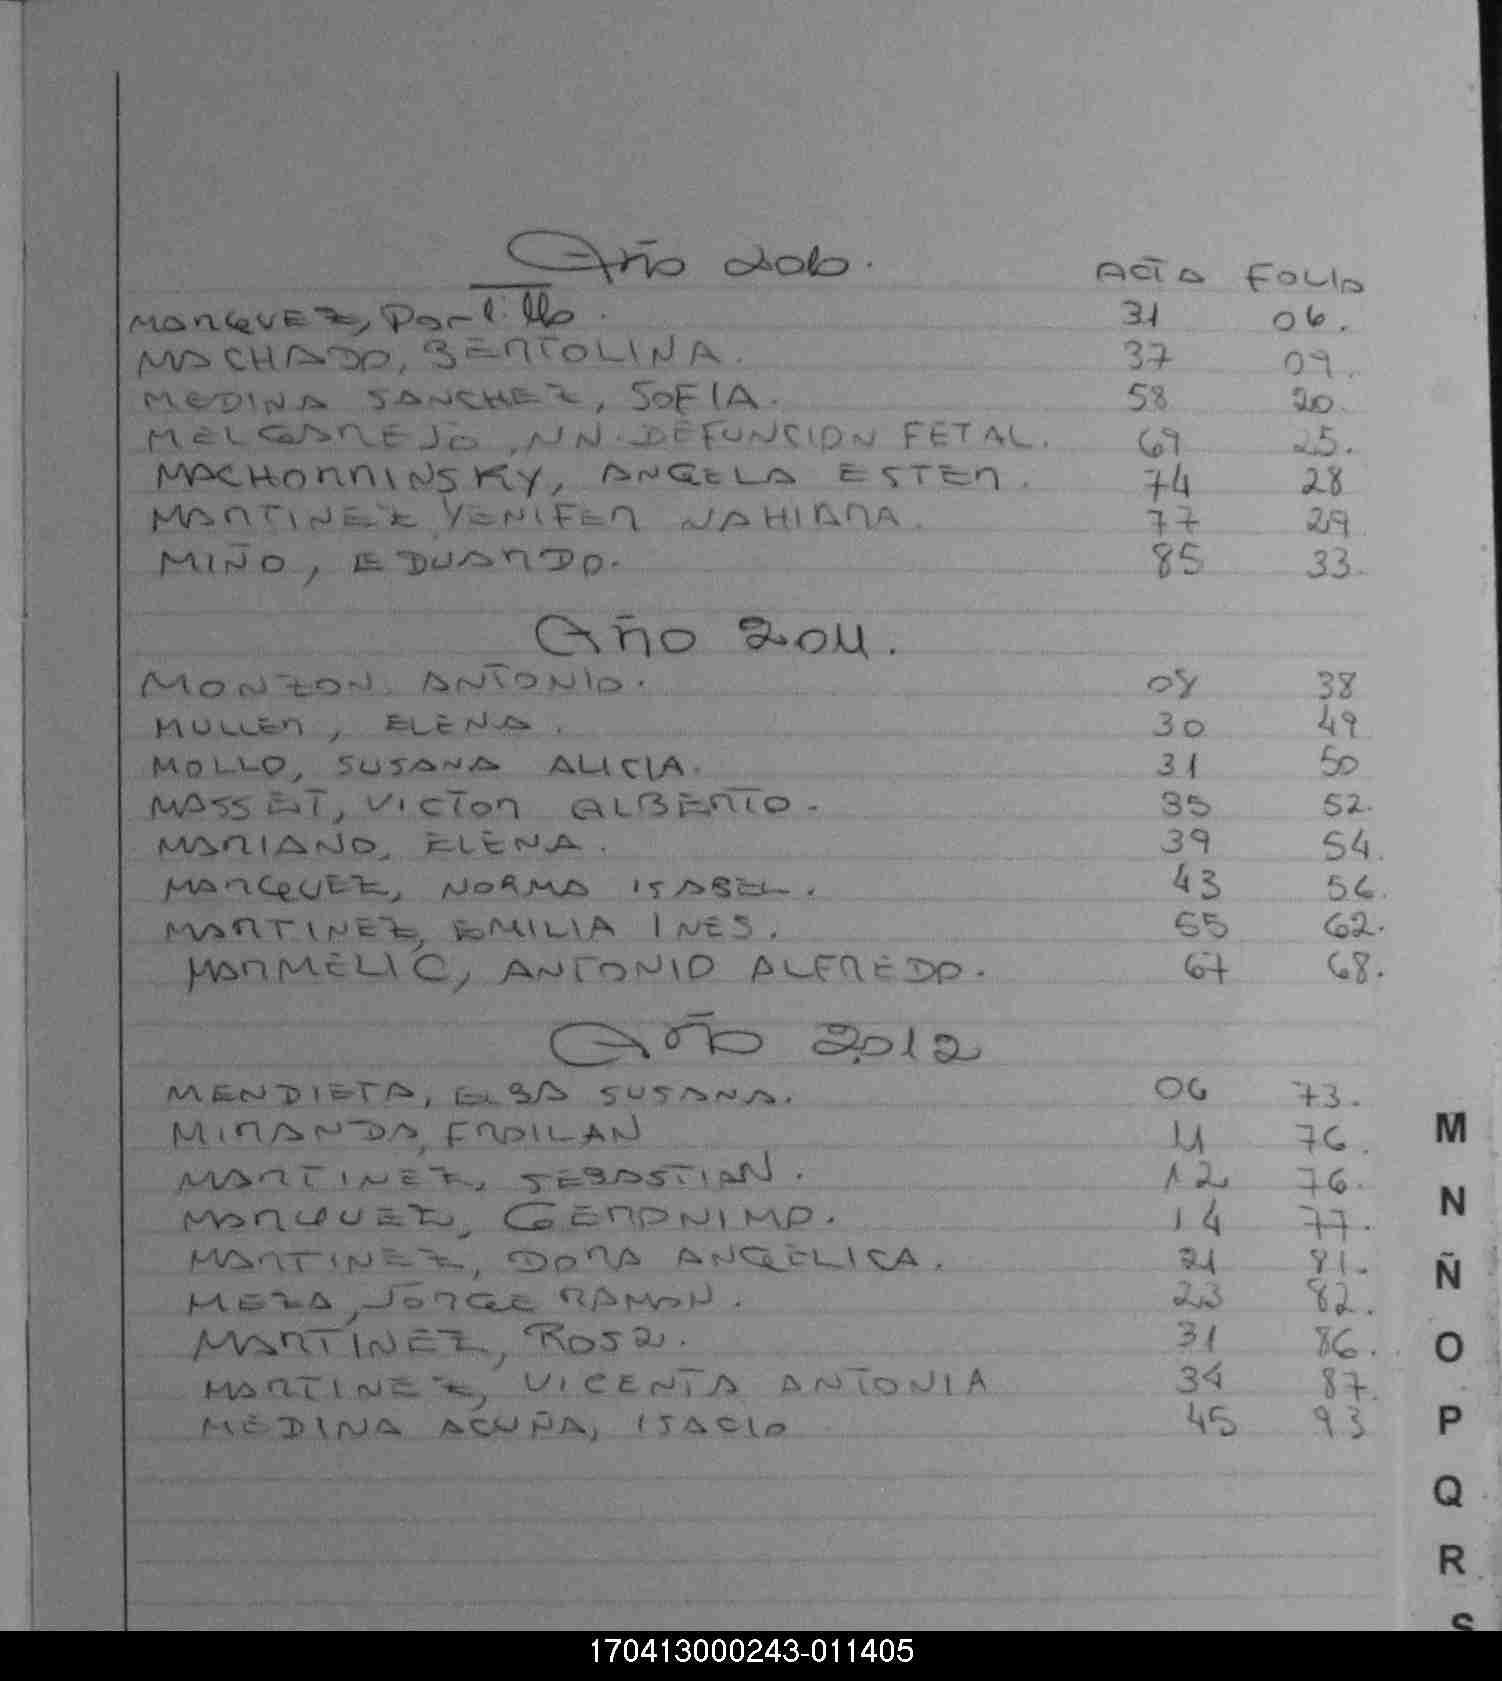 Año 2010.
ACTA FOLIO
MARQUEZ, Portillo. 31 06.
MACHADO, BERTOLINA. 37 09.
MEDINA SANCHEZ, SOFIA. 58 20.
MELGAREJO, NN. DEFUNCION FETAL. 69 25.
MACHORNINSKY, ANGELA ESTER. 74 28
MARTINEZ YENIFER NAHIARA. 77 29
MIÑO, EDUARDO. 85 33.
Año 2011.
MONZON. ANTONIO. 08 38
MULLER, ELENA. 30 49
MOLLO, SUSANA ALICIA. 31 50
MASSET, VICTOR ALBERTO. 35 52.
MARIANO, ELENA. 39 54.
MARQUEZ, NORMA ISABEL. 43 56.
MARTINEZ, EMILIA INES. 55 62.
MARMELIC, ANTONIO ALFREDO. 67 68.
AÑO 2012
MENDIETA, ELBA SUSANA. 06 73.
MIRANDA, FROILAN 11 76.
MARTINEZ, SEBASTIAN. 12 76.
MARQUEZ, GERONIMO. 14 77.
MARTINEZ, DORA ANGELICA. 21 81.
MEZA, JORGE RAMON. 23 82.
MARTINEZ, ROSA. 31 86.
MARTINEZ, VICENTA ANTONIA 34 87.
MEDINA ACUÑA, ISACIO 45 93
M
N
Ñ
O
P
Q
R
S
170413000243-011405